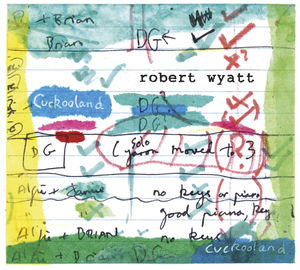 + Brian
Brian DG
robert wyatt
Cuckooland DG?
DG!
DG (solo moved to 3)
Alfie + Jamie no keys or piano
" good piano, key
Alfie + BRIAN no keys
Cuckooland